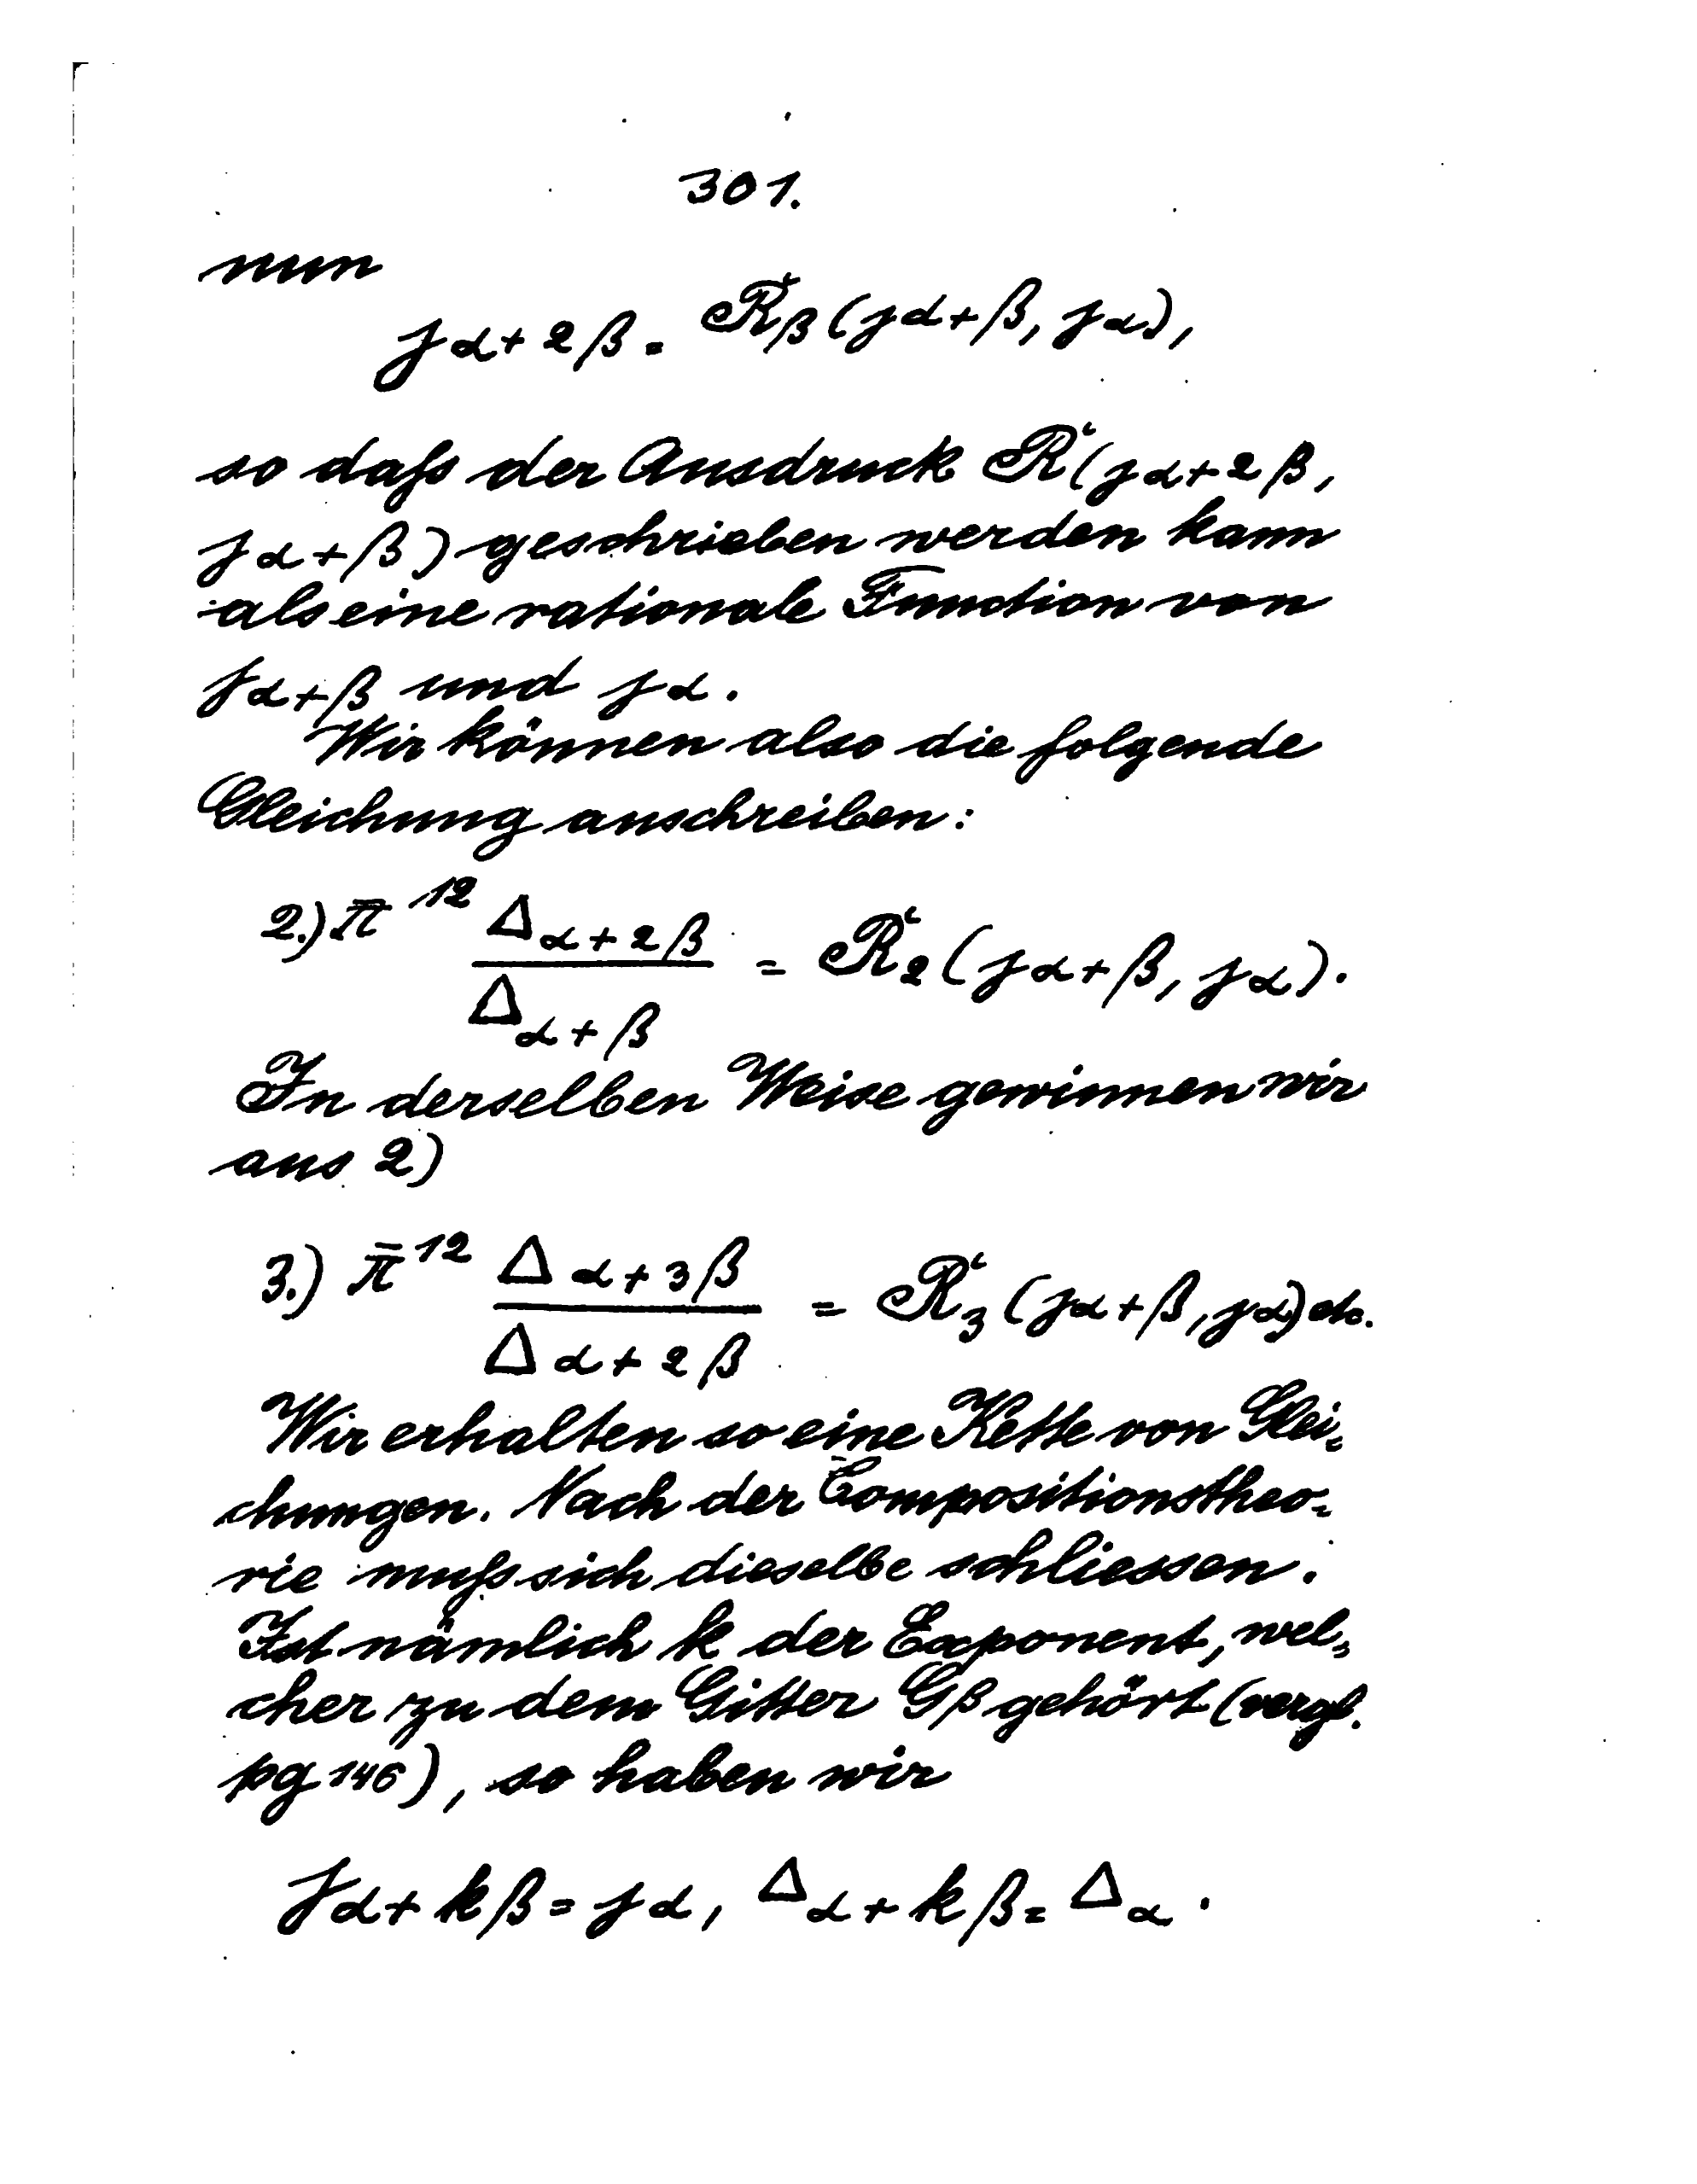 301.
nun
j_{α+2β} = R'_β (j_{α+β}, j_α),
so daß der Ausdruck R' (j_{α+2β},
j_{α+β}) geschrieben werden kann
als eine rationale Function von
j_{α+β} und j_α.
Wir können also die folgende
Gleichung anschreiben:
2.) π̄^{12} Δ_{α+2β} / Δ_{α+β} = R'_2 (j_{α+β}, j_α).
In derselben Weise gewinnen wir
aus 2)
3.) π̄^{12} Δ_{α+3β} / Δ_{α+2β} = R'_3 (j_{α+β}, j_α) etc.
Wir erhalten so eine Kette von Glei=
chungen. Nach der Compositionstheo=
rie muß sich dieselbe schliessen.
Ist nämlich k der Exponent, wel=
cher zu dem Gitter G_β gehört (vergl.
pg 146), so haben wir
j_{α+kβ} = j_α, Δ_{α+kβ} = Δ_α.